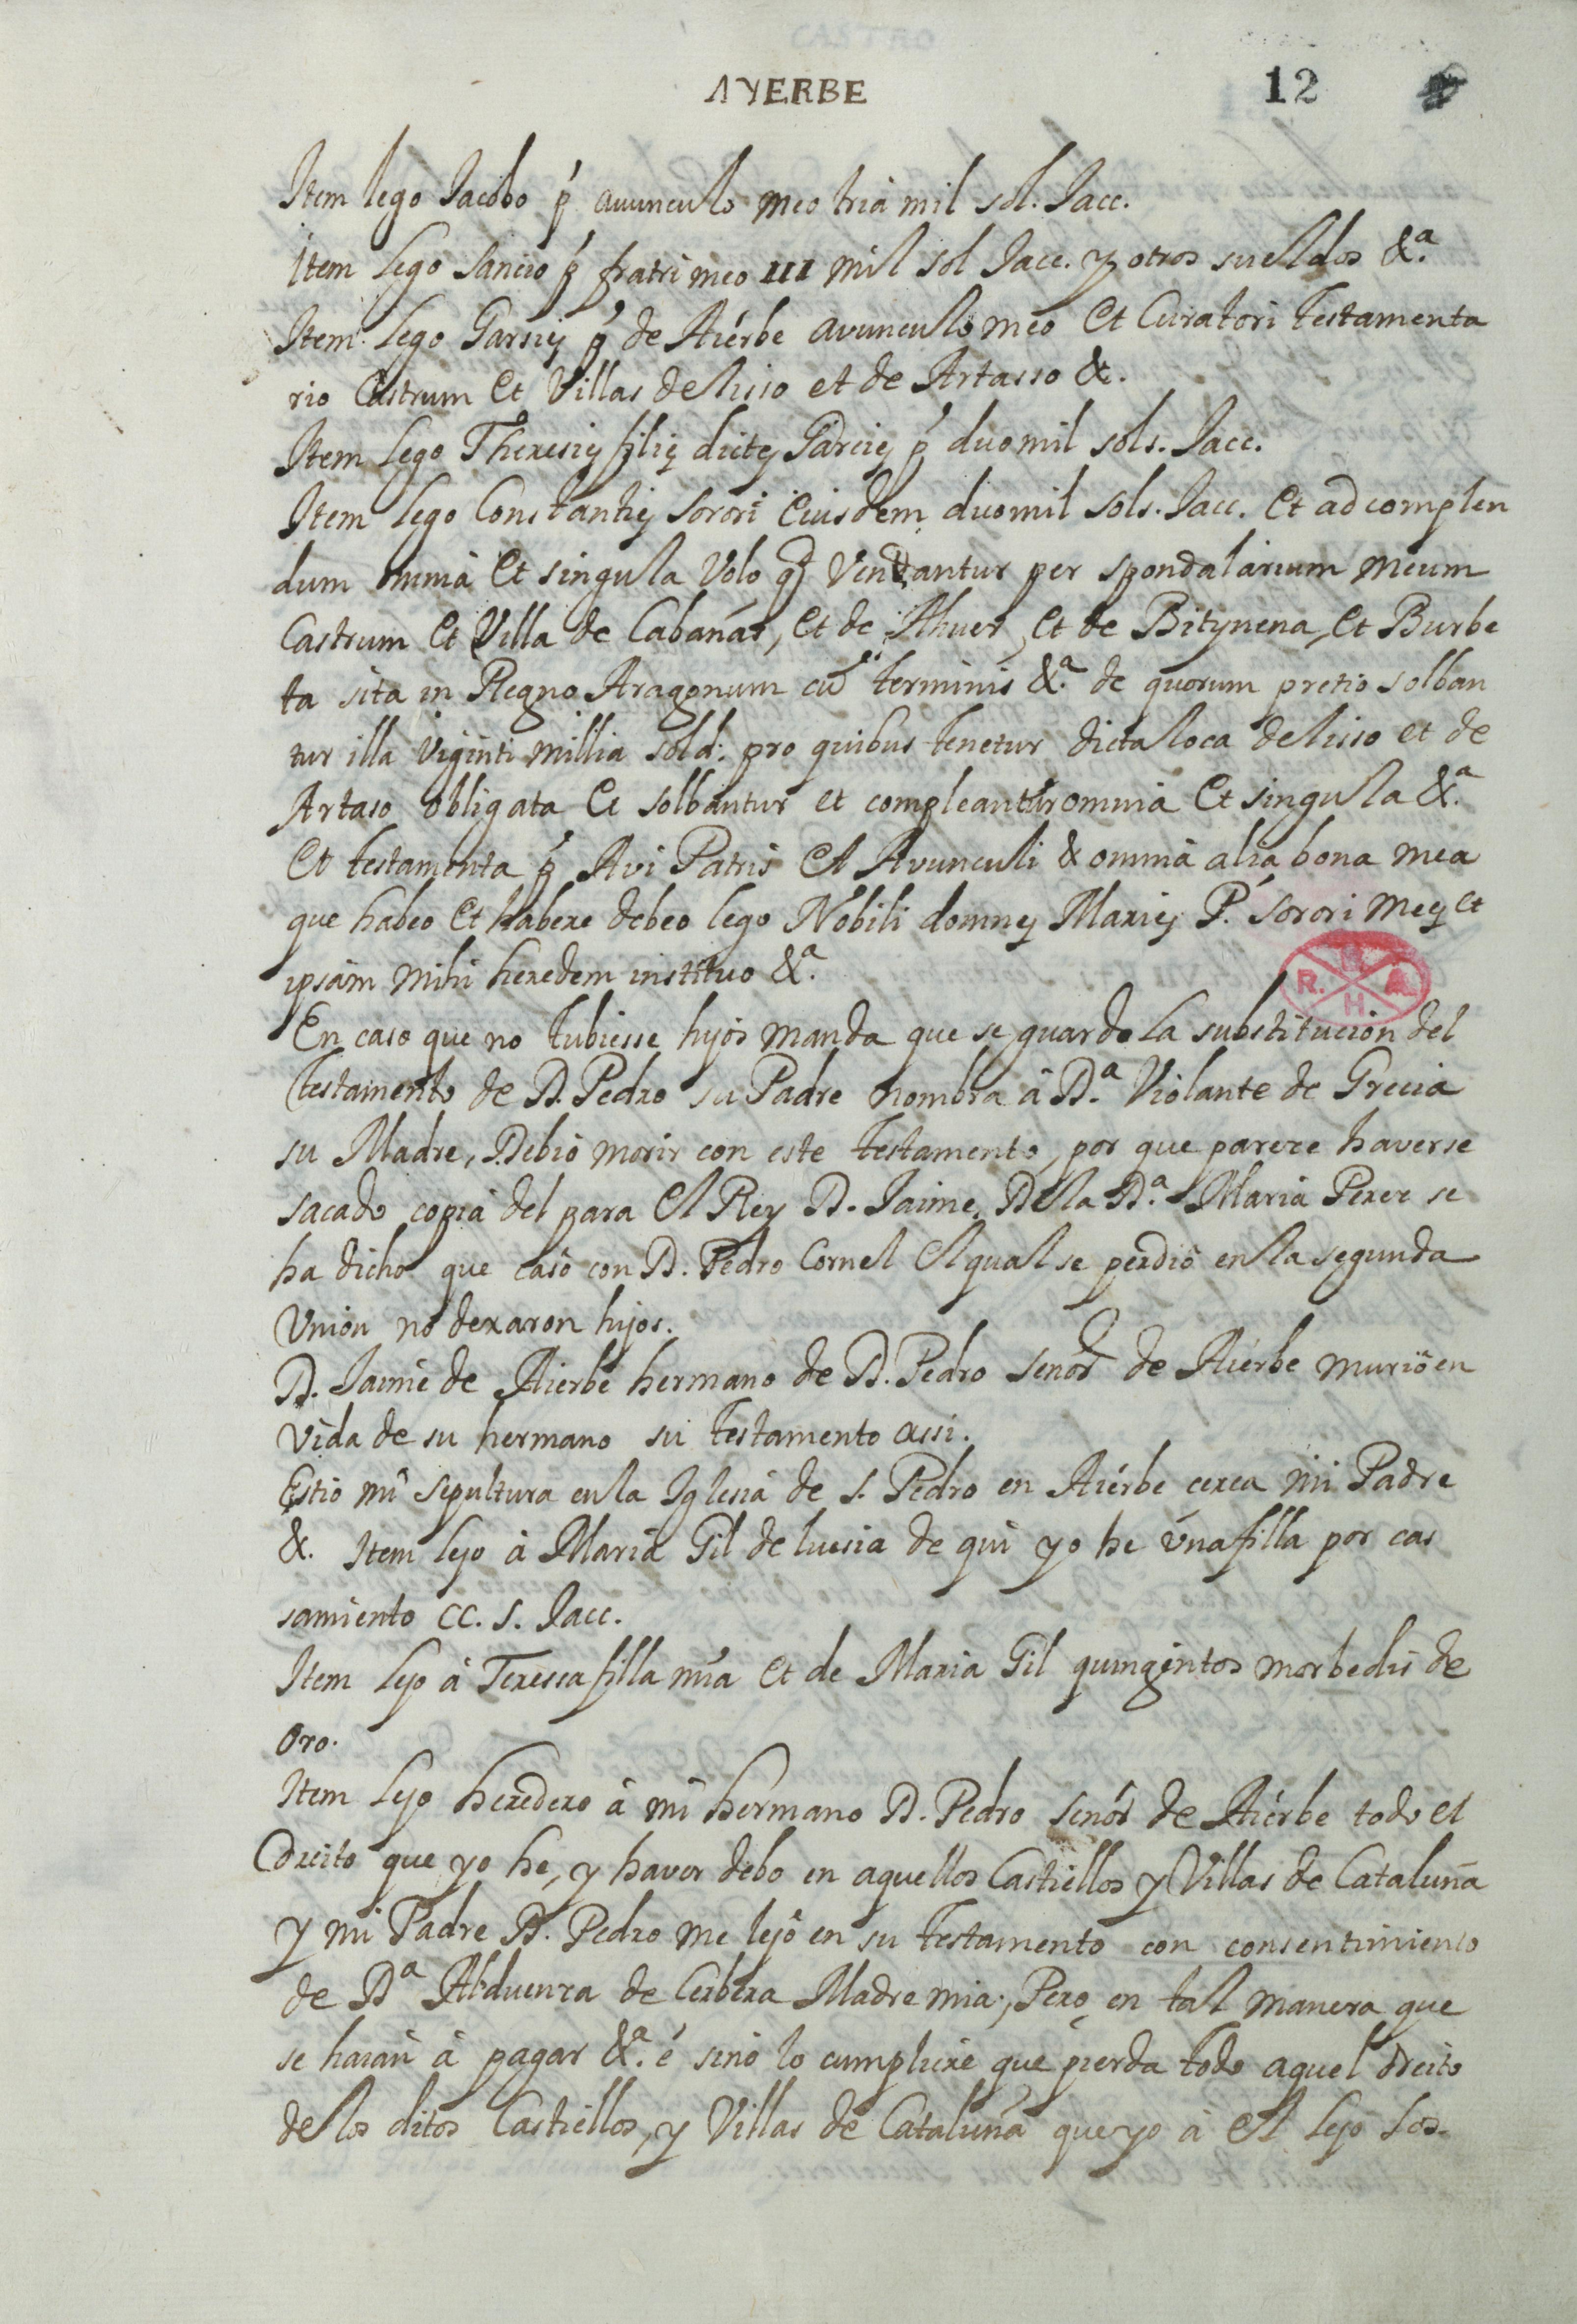 CASTRO
AYERBE
12
Item lego Iacobo p̃ auunculo meo tria mil sol. Iacc.
Item lego Sancio p̃ fratri meo III mil sol Iacc. y otros sueldos &.ª
Item lego Garsię p̃ de Aiérbe avunculo meo et Curatori testamenta
rio Castrum et Villas de lisso et de Artasso &.
Item lego Theresię filię dictę Garcię p̃ duo mil sols. Iacc.
Item lego Constantię sorori eiusdem duo mil sols. Iacc. Et ad complen
dum omnia et singula volo q̃d vendantur per spondalarium meum
Castrum et Villa de Cabanas, et de Ahuer, et de Bitynena, et Burbe
ta sita in Regno Aragonum cũ terminis &.ª de quorum pretio solban
tur illa viginti millia sold: pro quibus tenetur dicta loca de lisso et de
Artaso obligata et solbantur et compleantur omnia et singula &.ª
Et testamenta p̃ Avi Patris et Avunculi & omnia alia bona mea
que habeo et habere debeo lego Nobili domnę Marię P. sorori meę et
ipsam mihi heredem instituo &.ª
R. A. H
En caso que no tubiesse hijos manda que se guarde la substitucion del
testamento de D. Pedro su Padre nombra à D.ª Violante de Grecia
su Madre, Debio morir con este testamento, por que parece haverse
sacado copia del para el Rey D. Jaime, De la D.ª Maria Perez se
ha dicho que casò con D. Pedro Cornel el qual se perdiò en la segunda
Union no dexaron hijos.
D. Jaime de Aierbe hermano de D. Pedro senor de Aiérbe muriò en
vida de su hermano su testamento assi.
Estio mi sepultura en la Iglesia de S. Pedro en Aiérbe cerca mi Padre
&. Item lejo à Maria Gil de luesia de qui yo he una filla por cas
samiento CC. S. Iacc.
Item lejo à Teressa filla mia et de Maria Gil quingintos morbedis de
oro.
Item lejo heredero à mi hermano D. Pedro senor de Aiérbe todo el
dreito que yo he, y haver debo en aquellos Castiellos y Villas de Cataluña
y mi Padre D. Pedro me lejò en su testamento con consentimiento
de D.ª Alduenza de Cerbera Madre mia, Pero en tal manera que
se haian à pagar &.ª é sino lo cumplire que pierda todo aquel dreito
de los ditos Castiellos, y Villas de Cataluña que yo à el lejo Los-